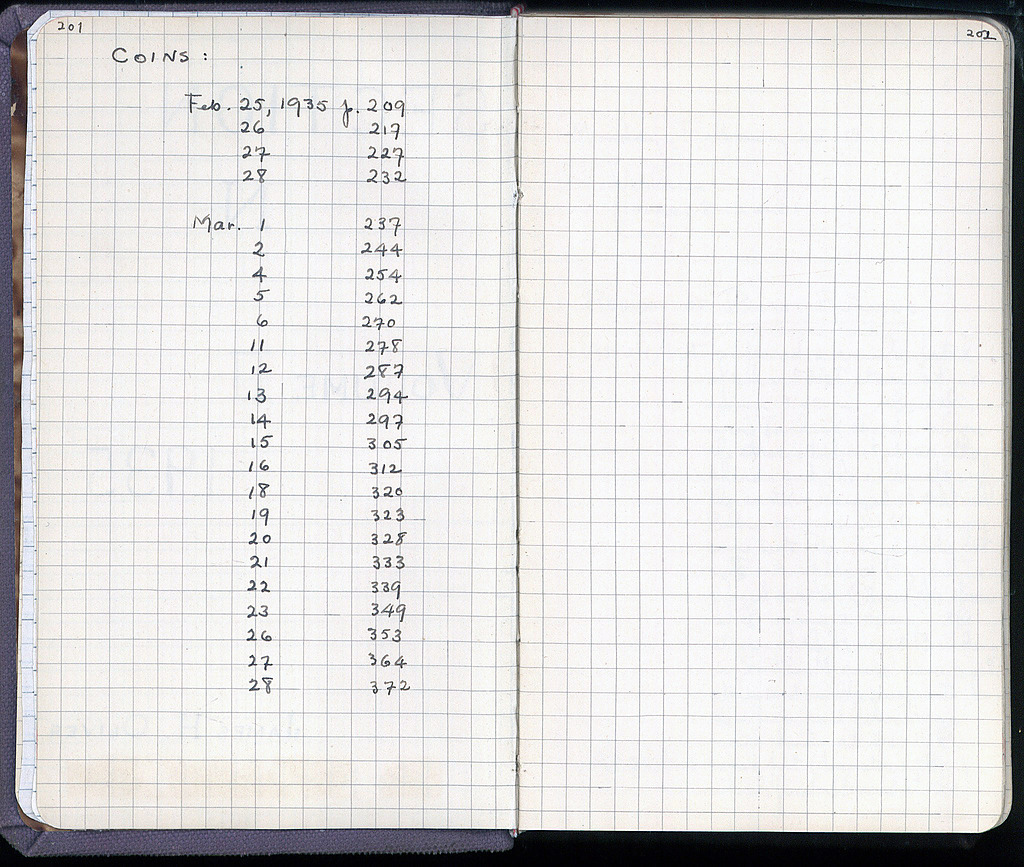 201
COINS:
Feb. 25, 1935 p. 209
26 217
27 227
28 232
Mar. 1 237
2 244
4 254
5 262
6 270
11 278
12 287
13 294
14 297
15 305
16 312
18 320
19 323
20 328
21 333
22 339
23 349
26 353
27 364
28 372
202